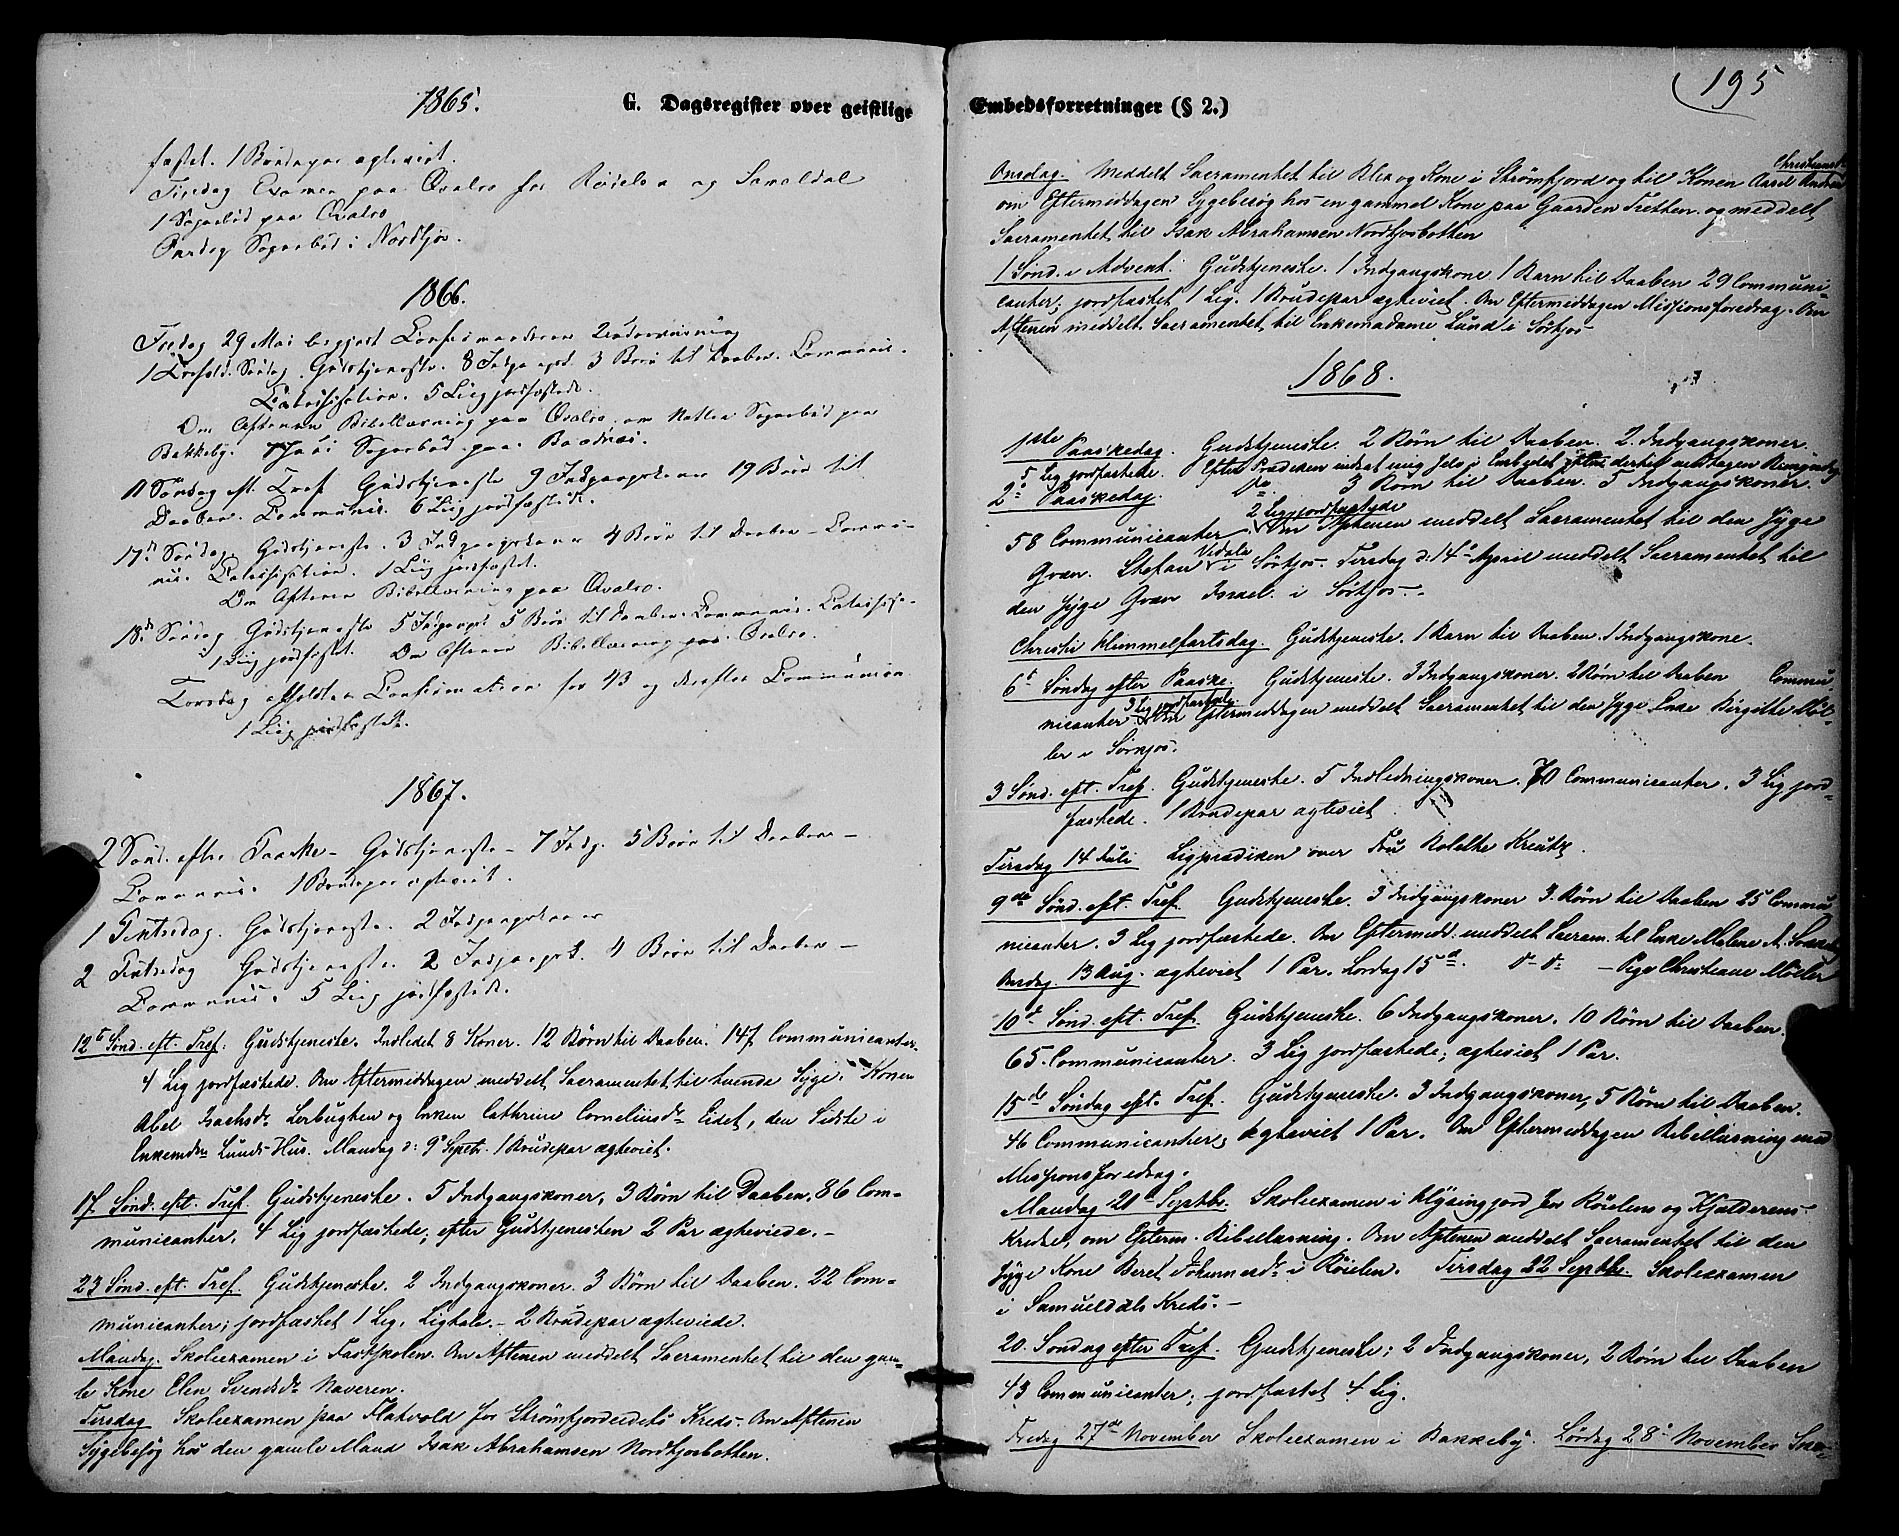 1865.
G. Dagsregister over geistlige
fæstet. 1 Brudepar ægteviet.
Tirsdag Examen paa Qvalsø for og
1 Sognebud paa Qvalsø
Onsdag Sognebud i Nordkjos.
1866.
Tirsdag 29 Mai begyndt Confirmanderne Underviisning
1 Trefold. Søndag. Gudstjeneste. 8 Indgangsk. 3 Børn til Daaben. Communic.
Catechisation. 5 Liig jordfæstede.
Om Aftenen Bibellæsning paa Qvalsø, om Natten Sognebud paa
Bakkeby. Sognebud paa
11 Søndag eft. Tref. Gudstjeneste 9 Indgangskoner 19 Børn til
Daaben. Communic. 6 Liig jordfæstede.
17de Søndag. Gudstjeneste. 3 Indgangskoner 4 Børn til Daaben – Commu-
nic. Catechisation. 1 Liig jordfæstet.
Om Aftenen Bibellæsning paa Qvalsø.
18de Søndag Gudstjeneste 5 Indgangs. 5 Børn til Daaben. Communic. Catechisa-
1 Liig jordfæstet. Om Aftenen Bibellæsning paa Qvalsø.
Torsdag afholdtes Confirmation for 43 og derefter Communion
1 Liig jordfæstede.
1867.
2 Sønd. efter Paaske – Gudstjeneste – 7 Indg. 5 Børn til Daaben –
Communic. 1 Brudepar ægteviet.
1 Pintsedag. Gudstjeneste. 2 Indgangskoner
2 Pintsedag Gudstjeneste. 2 Indgangsk. 4 Børn til Daaben –
Communic. 5 Liig jordfæstede.
12te Sønd. eft. Tref. Gudstjeneste. Indledet 8 Koner. 12 Børn til Daaben. 147 Communicanter.
4 Lig jordfæstede. Om Eftermiddagen meddelt Sacramentet til tvende Syge. Konen
Abel Isachsdr Lerbugten og Enken Cathrine Corneliusdr Eidet, den Sidste i
Enkemdm Lunds Hus. Mandag d: 9de Septbr. 1 Brudepar ægteviet.
17 Sønd. eft. Tref. Gudstjeneste. 5 Indgangskoner, 3 Børn til Daaben, 86 Com-
municanter. 4 Lig jordfæstede; efter Gudstjenesten 2 Par ægteviede. –
23 Sønd. eft. Tref. Gudstjeneste. 2 Indgangskoner. 3 Børn til Daaben. 22 Com-
municanter; jordfæstet 1 Lig. Ligtale. – 2 Brudepar ægteviede.
Mandag. Skoleexamen i Fastskolen. Om Aftenen meddelt Sacramentet til den gam-
le Kone Elen Svendsdr Naveren.
Tirsdag Skoleexamen paa Flatvold for Strømfjordeidets Kreds. Om Aftenen
Sygebesøg hos den gamle Mand Isak Abrahamsen Nordkjosbotten.
195
Embedsforretninger (§ 2.)
Onsdag Meddelt Sacramentet til og Kone i Strømfjord og til Konen
om Eftermiddagen Sygebesøg hos en gammel Kone paa Gaarden Tretten og meddelt
Sacramentet til Isak Abrahamsen Nordkjosbotten
1 Sønd. i Advent. Gudstjeneste. 1 Indgangskone 1 Barn til Daaben 29 Communi-
canter; jordfæstet 1 Lig. 1 Brudepar ægteviet. Om Eftermiddagen Missionsforedrag. Om
Aftenen meddelt Sacramentet til Enkemadame Lund i Sørkjos
1868.
1ste Paaskedag. Gudstjeneste. 2 Børn til Daaben. 2. Indgangskoner.
5 Lig jordfæstede. Efter Prædiken indsat mig selv i Embedet efter dertil
2den Paaskedag. Do 3 Børn til Daaben. 5 Indgangskoner.
2 Lig jordfæstede
58 Communicanter. Om Aftenen meddelt Sacramentet til den syge
Qvæn. Stefan Vidale i Sørkjos. Tirsdag d: 14de April meddelt Sacramentet til
den syge Qvæn Israel. i Sørkjos. –
Christi Himmelfartsdag. Gudstjeneste. 1 Barn til Daaben. 1 Indgangskone.
6te Søndag efter Paaske. Gudstjeneste. 3 Indgangskoner. 2 Børn til Daaben Commu-
3 Lig jordfæstede.
nicanter. Om Eftermiddagen meddelt Sacramentet til den syge Enke Birgitte Møl-
ler i Sørkjos.
3 Sønd. eft. Tref. Gudstjeneste. 5 Indledningskoner. 70 Communicanter. 3 Lig jord-
fæstede. 1 Brudepar ægteviet.
Tirsdag 14 Juli Ligprædiken over Fru Kreutz.
9de Sønd. eft. Tref. Gudstjeneste. 3 Indgangskoner 3. Børn til Daaben 25 Commu-
nicanter. 3 Lig jordfæstede. Om Eftermidd. meddelt Sacram. til Enke Malene A.
Onsdag. 13 Aug. ægteviet 1 Par. Lørdag 15de. do do – Pige Christiane Møller
10de Sønd. eft. Tref. Gudstjeneste. 6 Indgangskoner. 10 Børn til Daaben.
65. Communicanter. 3 Lig jordfæstede; ægteviet 1 Par.
15de Søndag eft. Tref. Gudstjeneste. 3 Indgangskoner, 5 Børn til Daaben.
46 Communicanter; Ægteviet 1 Par. Om Eftermiddagen Bibellæsning med
Missionsforedrag.
Mandag 21de Septbr. Skoleexamen i Klysingjord for Røielens og Kjelderens
Kredse, om Efterm. Bibellæsning. Om Aftenen meddelt Sacramentet til den
syge Kone Beret Johannesdr i Røielen. Tirsdag 22 Septbr. Skoleexamen
i Samueldals Kreds. –
20. Søndag efter Tref. Gudstjeneste; 2 Indgangskoner, 2 Børn til Daaben
43 Communicanter; jordfæstet 4 Lig.
Fredag 27de November Skoleexamen i Bakkeby. Lørdag 28de November Sko-